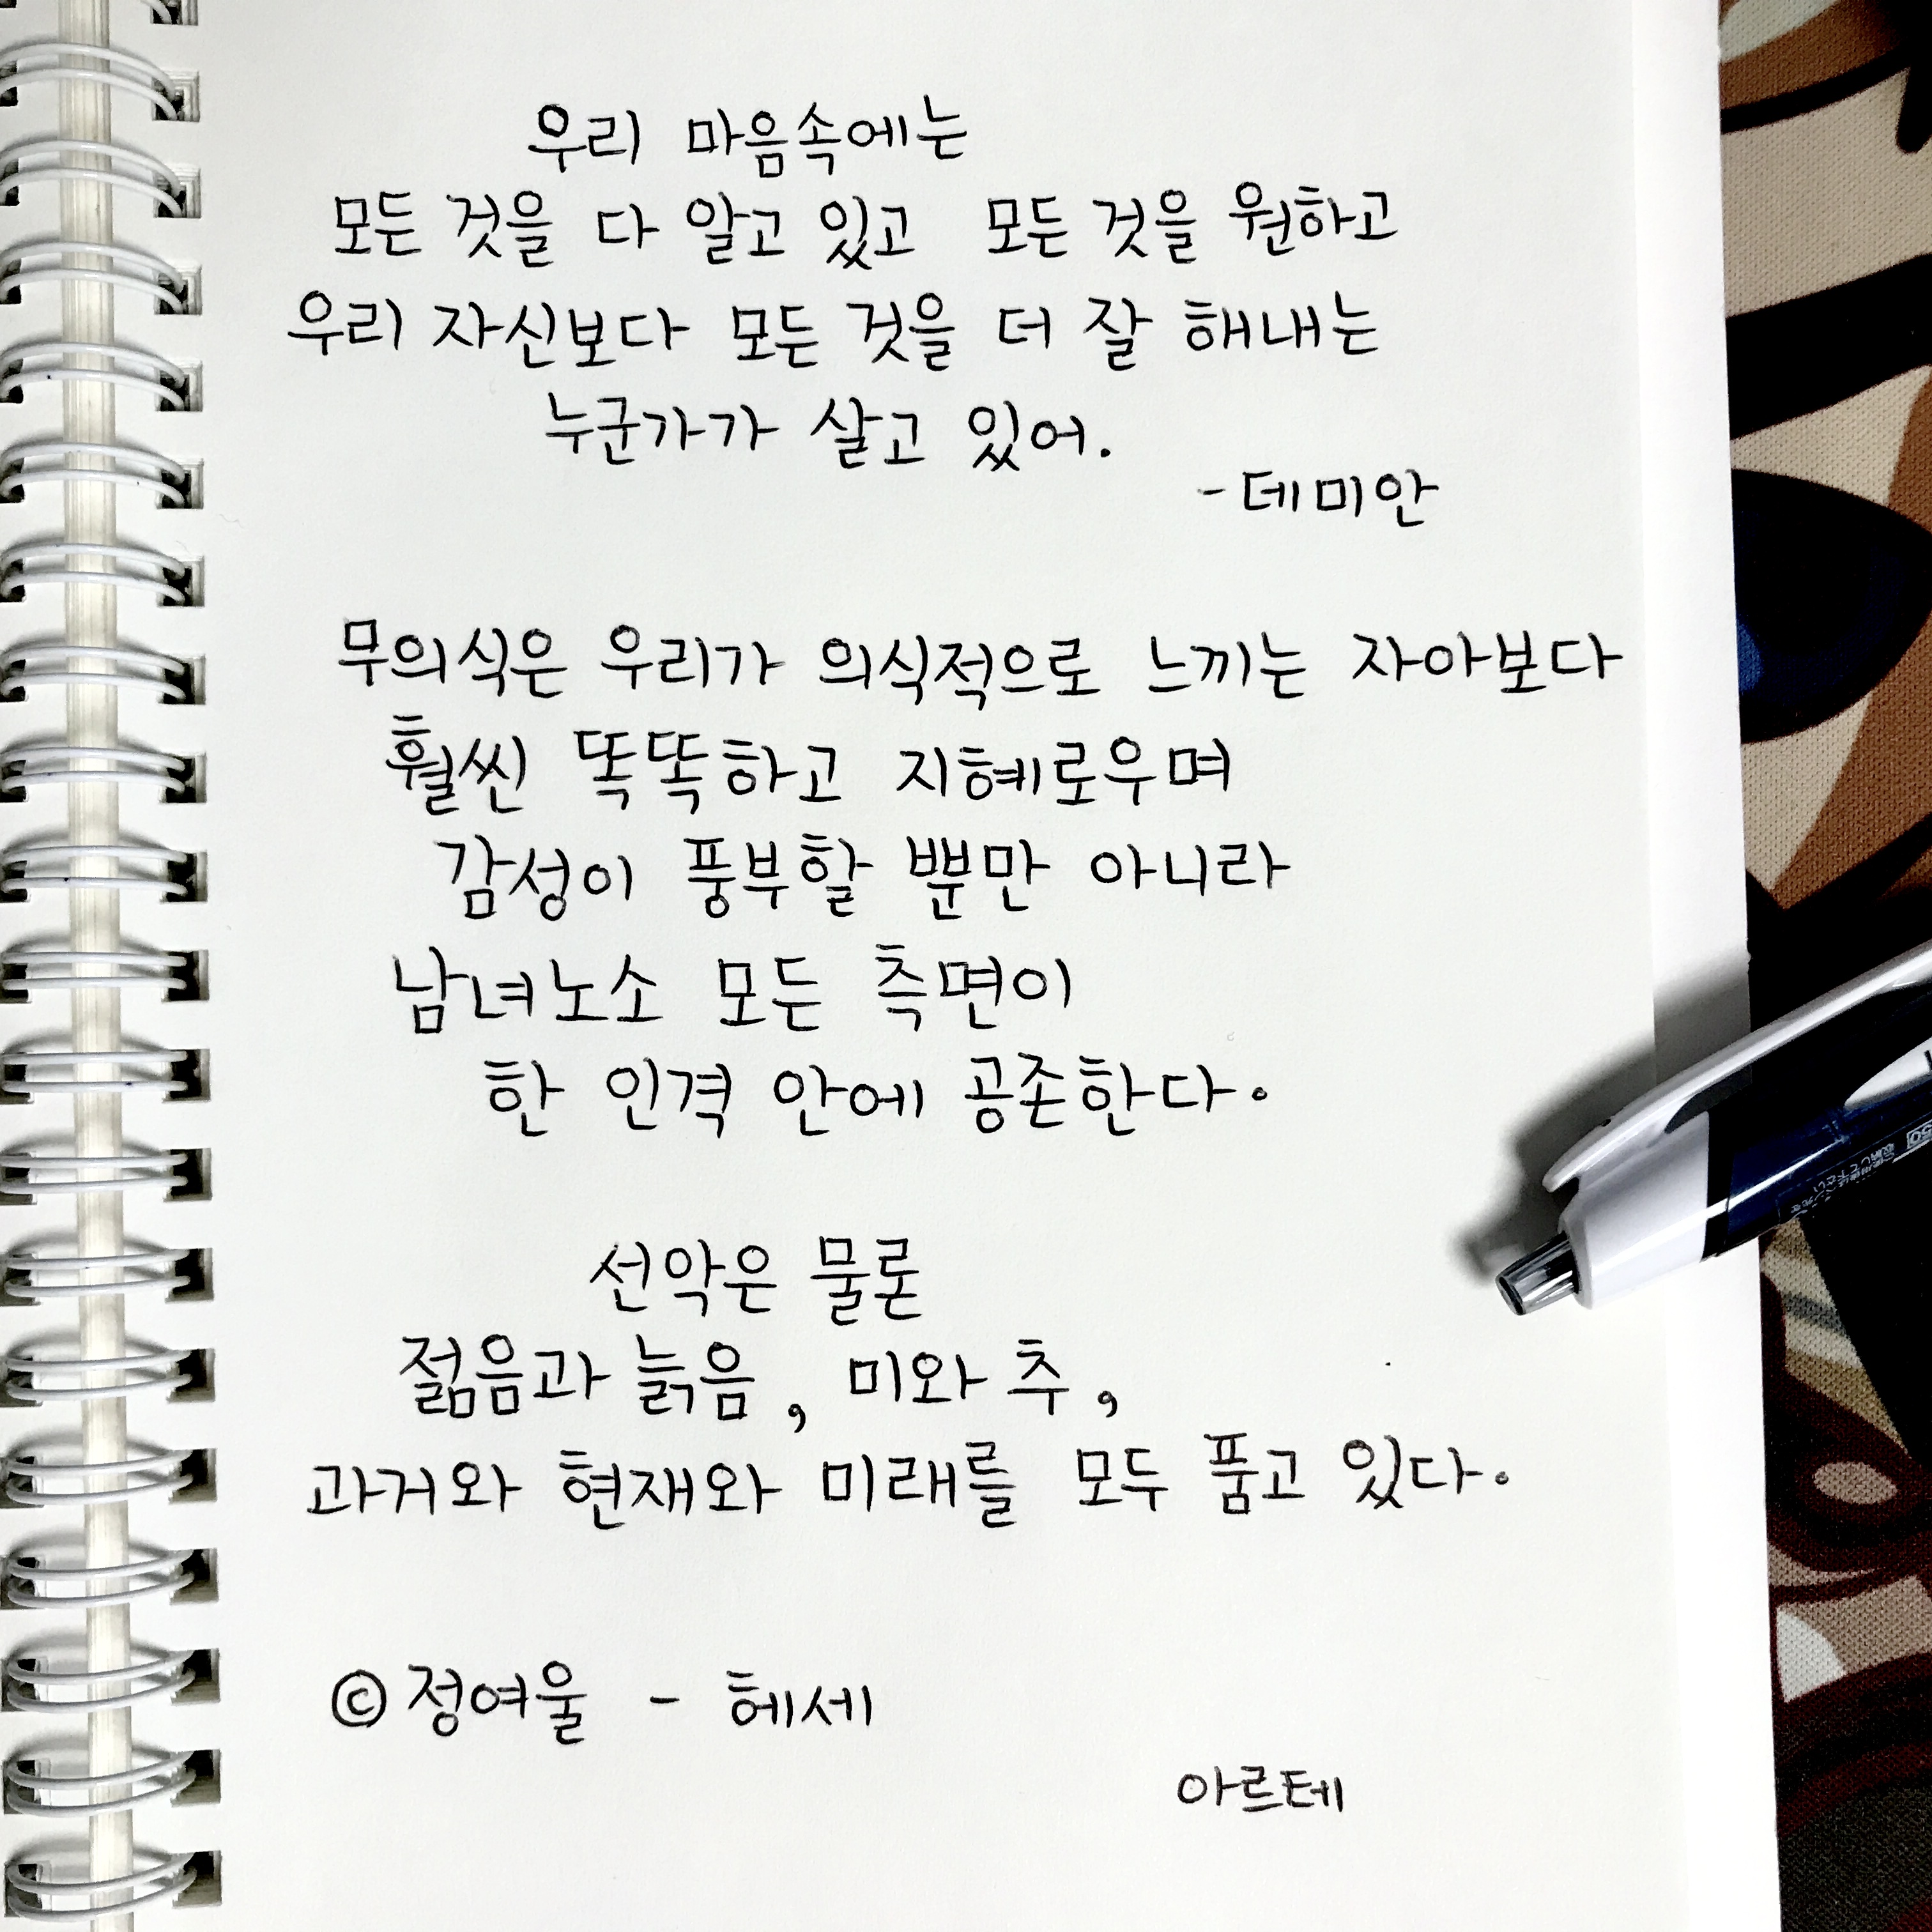 우리 마음속에는
모든 것을 다 알고 있고 모든 것을 원하고
우리 자신보다 모든 것을 더 잘 해내는
누군가가 살고 있어.
- 데미안
무의식은 우리가 의식적으로 느끼는 자아보다
훨씬 똑똑하고 지혜로우며
감성이 풍부할 뿐만 아니라
남녀노소 모든 측면이
한 인격 안에 공존한다.
선악은 물론
젊음과 늙음, 미와 추,
과거와 현재와 미래를 모두 품고 있다.
© 정여울 - 헤세
아르테